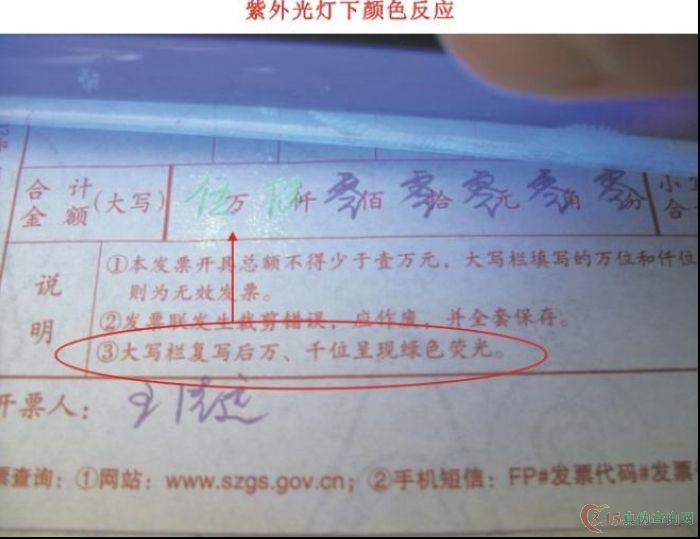 紫外光灯下颜色反应
合计金额(大写) 伍万 仟零佰零拾零元零角零分 小写合
说明
①本发票开具总额不得少于壹万元,大写栏填写的万位和仟位
则为无效发票。
②发票联发生裁剪错误,应作废,并全套保存。
③大写栏复写后万、千位呈现绿色荧光。
开票人:
票查询:①网站:www.szgs.gov.cn;②手机短信:FP#发票代码#发票
315真伪查询网